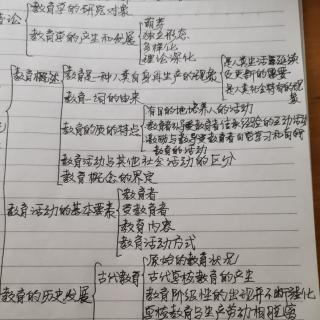 教育学的研究对象
论
教育学的产生和发展
萌芽
独立形态
多样化
理论深化
教育概述
教育是一种人类自身再生产的现象
是人类生活延续
及更新的需要
是人类社会特有的现
象
教育一词的由来
教育的质的特点
有目的地培养人的活动
教育者引导受教育者传承经验的互动活动
激励与教导受教育者自觉学习和自我
教育的活动
教育活动与其他社会活动的区分
教育概念的界定
教育活动的基本要素
教育者
受教育者
教育内容
教育活动方式
教育的历史发展
古代教育
原始的教育状况
古代学校教育的产生
教育阶级性的出现并不断强化
学校教育与生产劳动相脱离